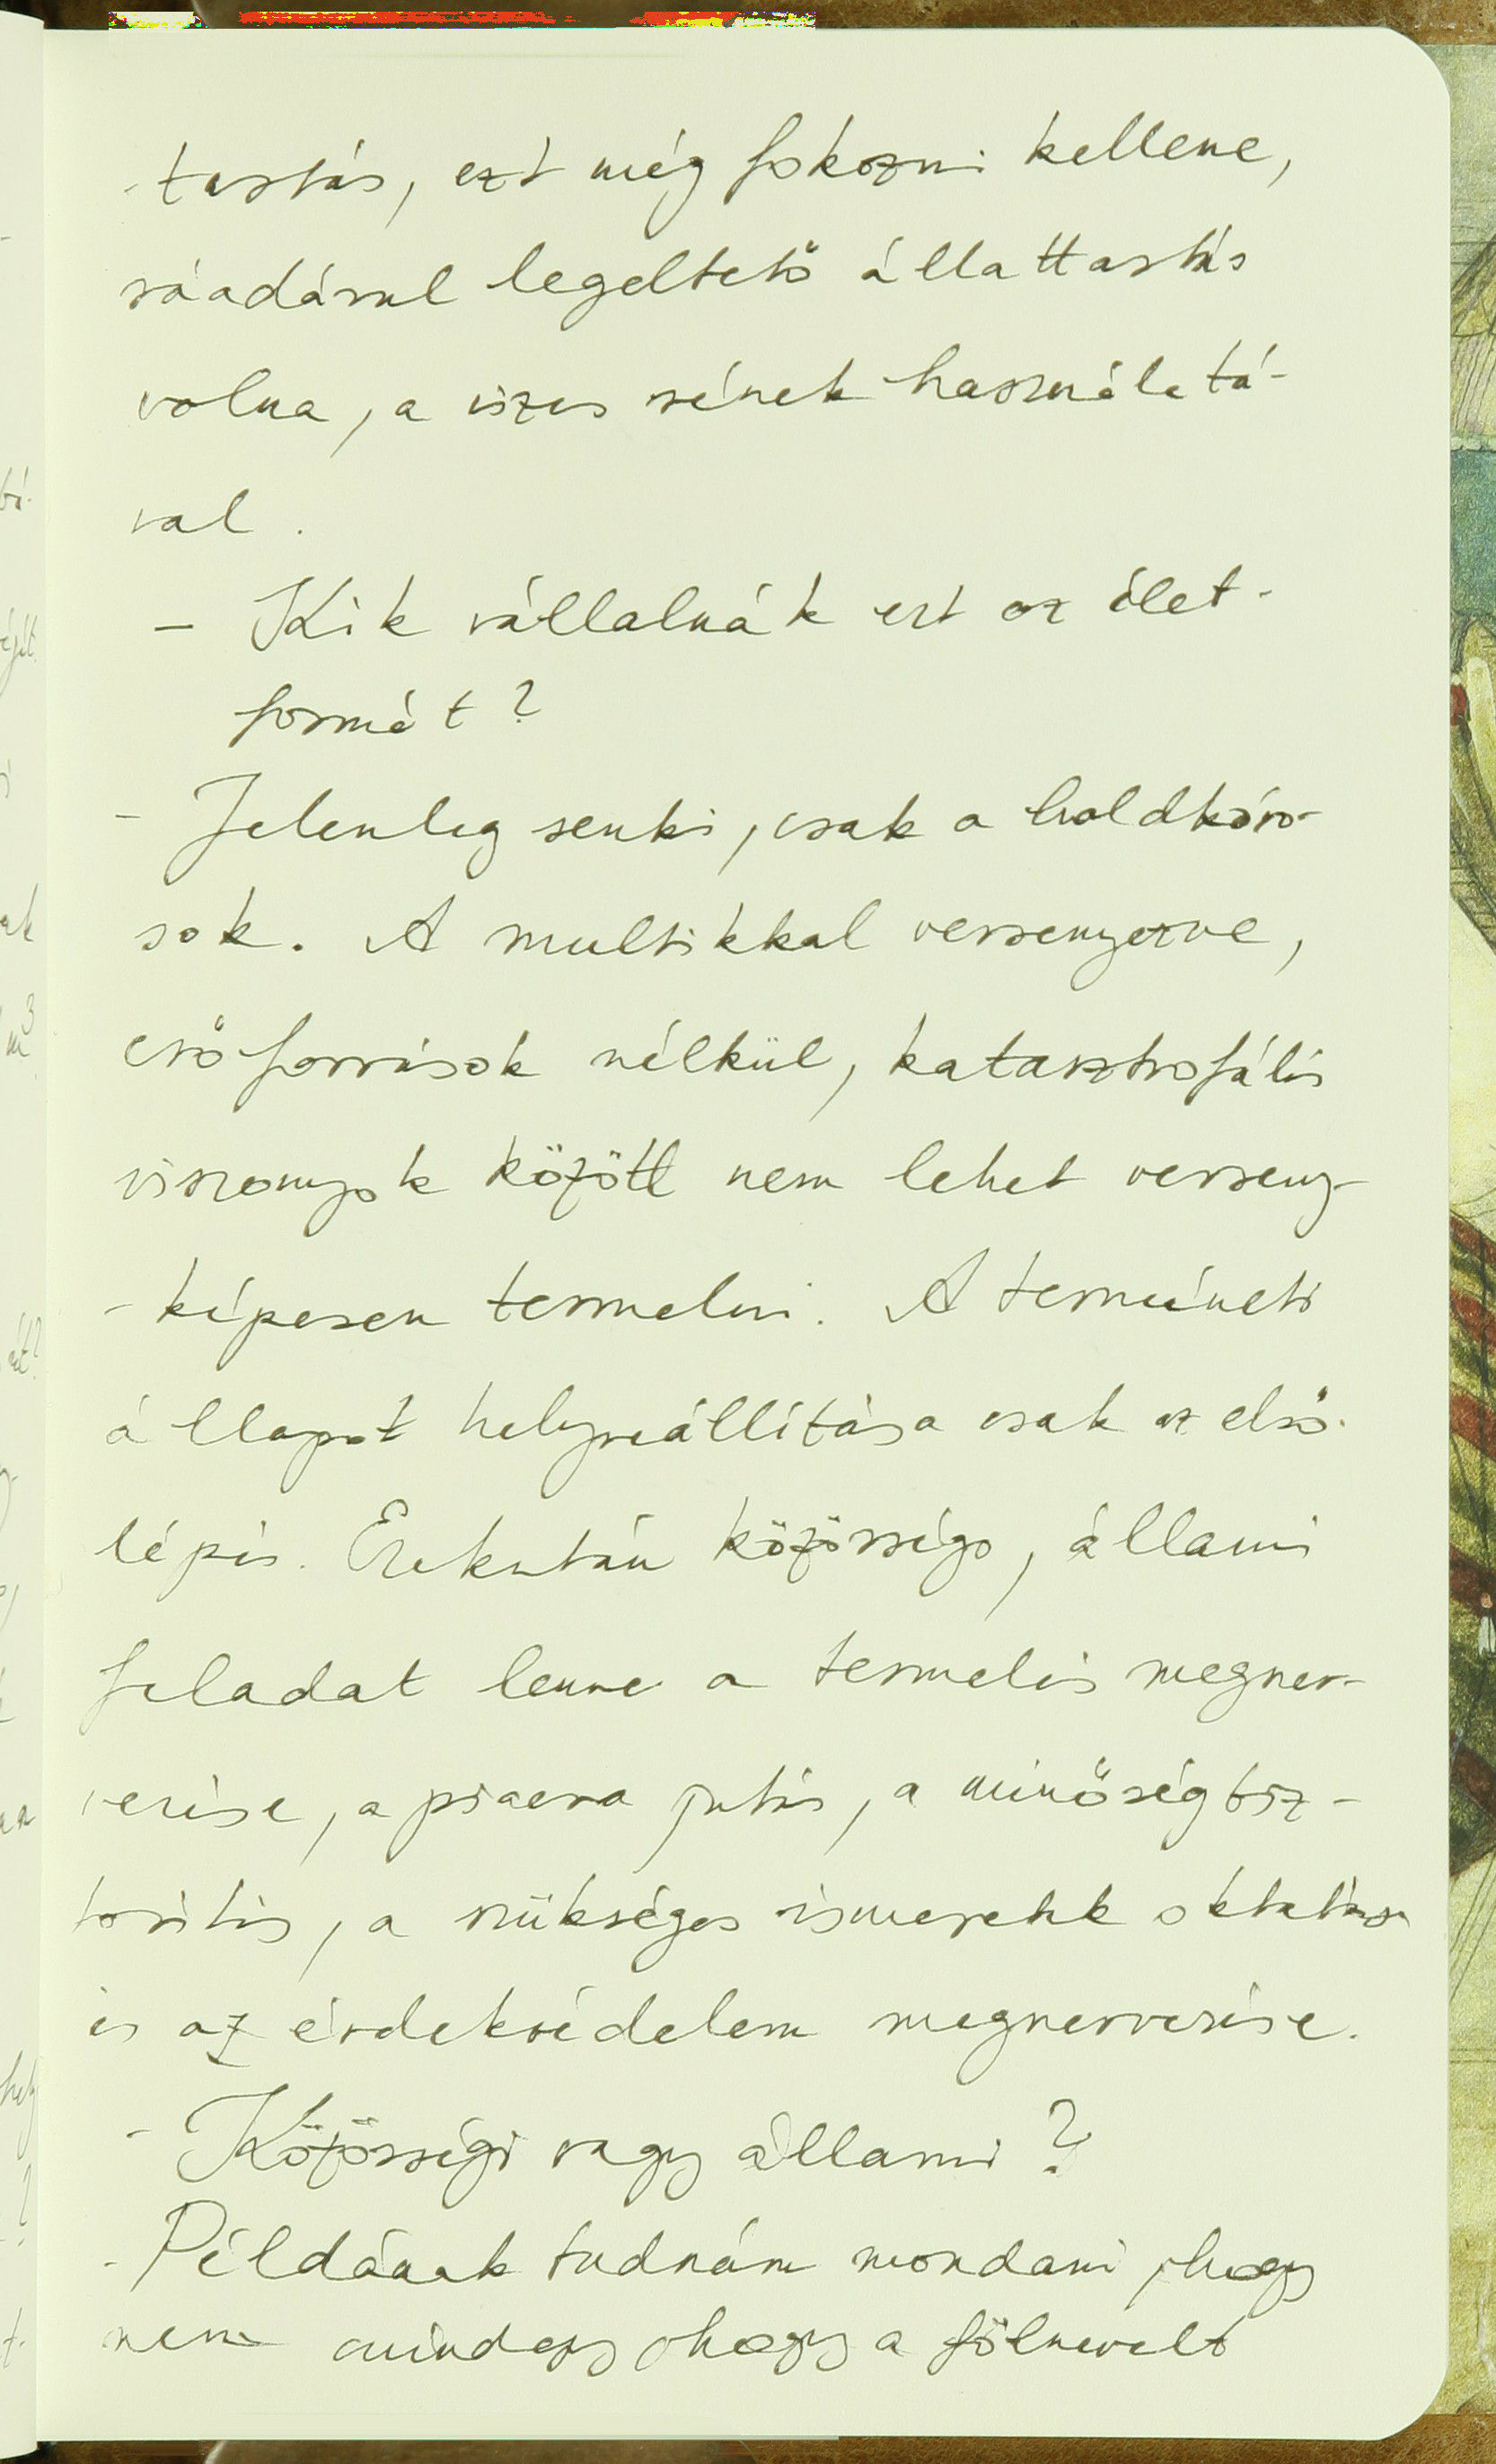 -tartás, ezt még fokozni kellene,
ráadásul legeltető állattartás
volna, a vizes rétek használatá-
val.
- Kik vállalnák ezt az élet-
formát?
- Jelenleg senki, csak a holdkóro-
sok. A multikkal versenyezve,
erőforrások nélkül, katasztrofális
viszonyok között nem lehet verseny-
-képesen termelni. A természeti
állapot helyreállítása csak az első
lépés. Ezekután közösségi, állami
feladat lenne a termelés megszer-
vezése, a piacra jutás, a minőségbiz-
tosítás, a szükséges ismeretek oktatása
és az érdekvédelem megszervezése.
- Közösségi vagy állami?
- Példának tudnám mondani, hogy
nem mindegy, hogy a fölnevelt